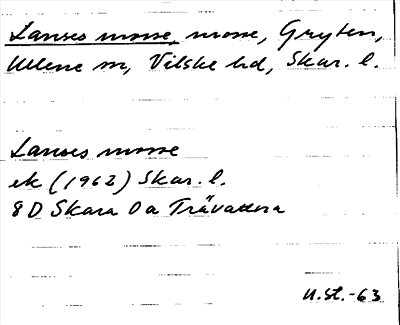 Lanses mosse, mosse, Gryten,
Ullene sn, Vilske hd, Skar. l.
Lanses mosse
ek (1962) Skar. l.
8D Skara 0a Trävattna
U.St.-63